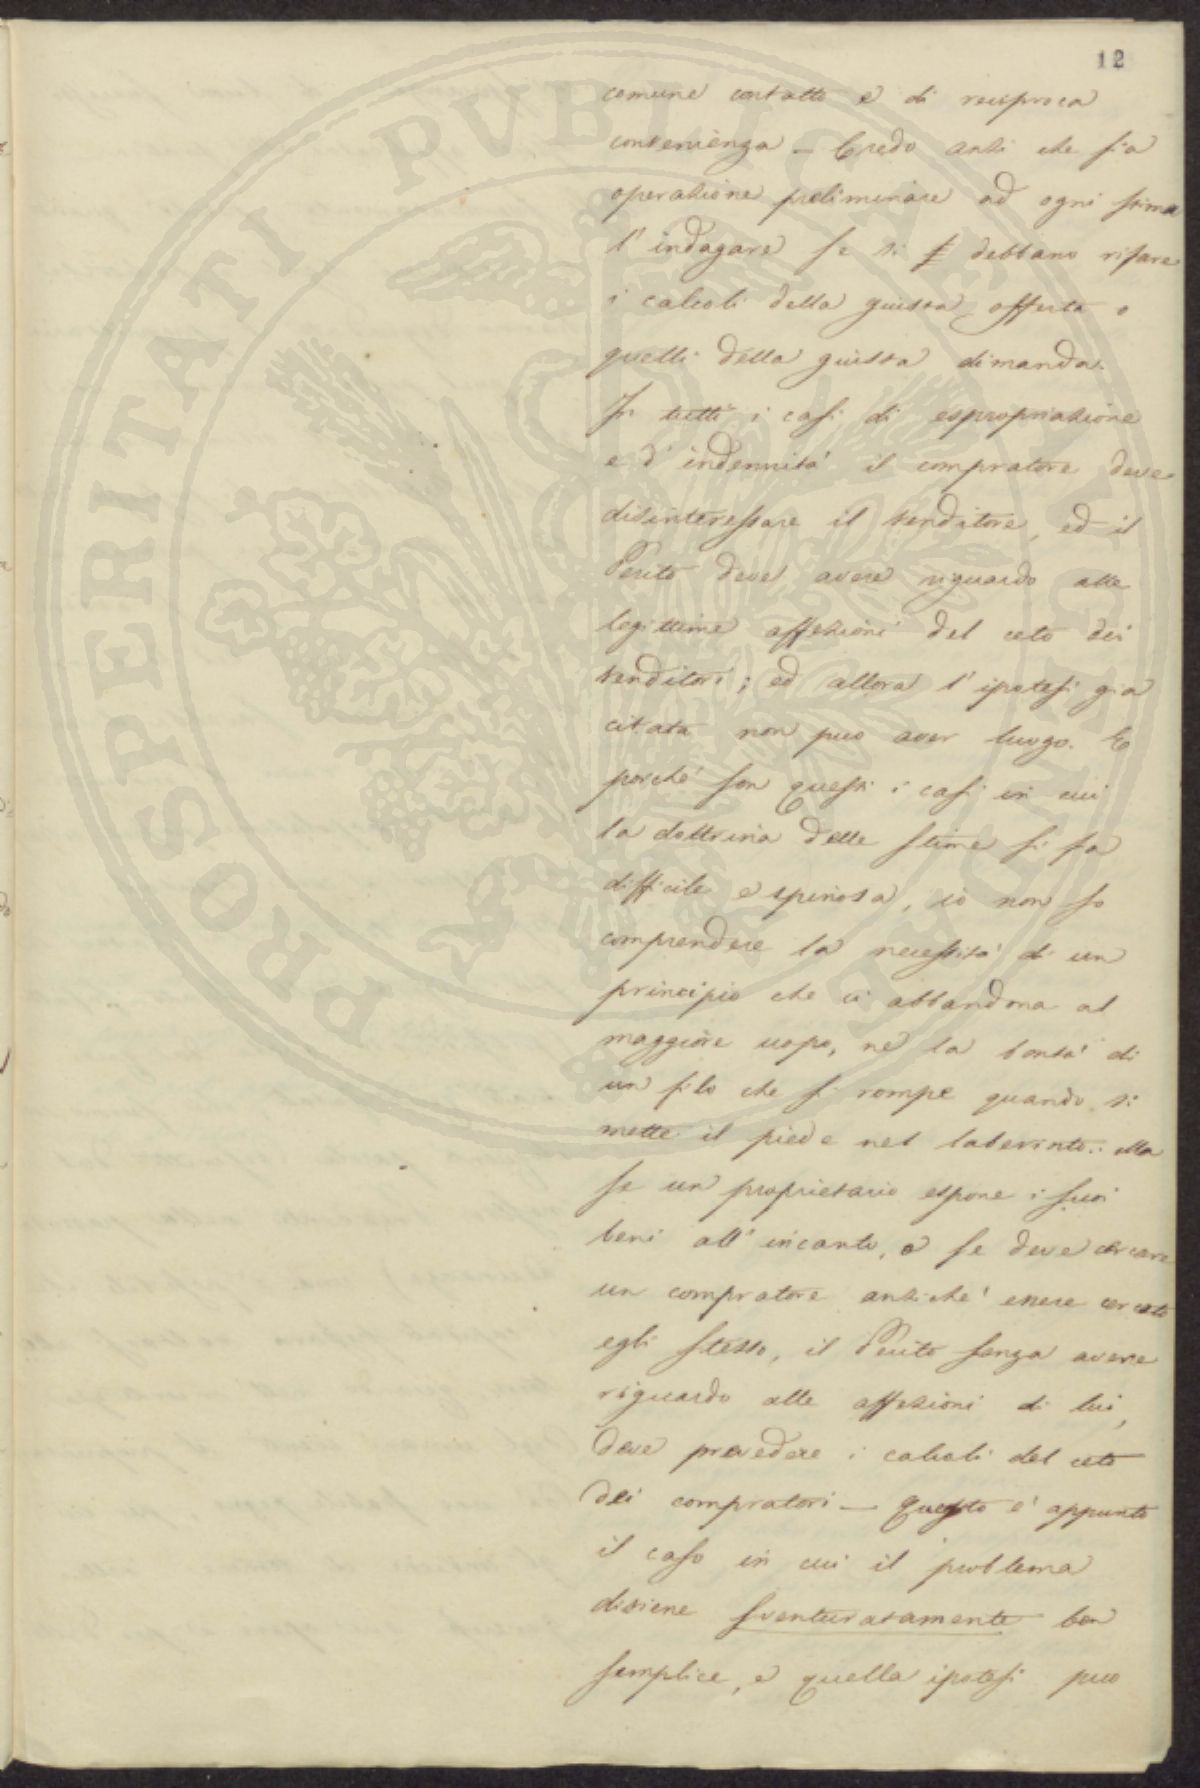 12
comune contatto e di reciproca
convenienza – Credo anzi che sia
operazione preliminare ad ogni stima
l'indagare se si debbano rifare
i calcoli della giusta offerta o
quelli della giusta dimanda.
In tutti i casi di espropriazione
e d'indennità il compratore deve
disinteressare il venditore, ed il
Perito deve avere riguardo alle
legittime affezioni del ceto dei
venditori; ed allora l'ipotesi già
citata non può aver luogo. E
perchè son questi i casi in cui
la dottrina delle stime si fa
difficile e spinosa, io non so
comprendere la necessità di un
principio che ci abbandona al
maggiore uopo, nè la bontà di
un filo che si rompe quando si
mette il piede nel laberinto. Ma
se un proprietario espone i suoi
beni all'incanto, o se deve cercare
un compratore anzichè essere cercato
egli stesso, il Perito senza avere
riguardo alle affezioni di lui,
deve prevedere i calcoli del ceto
dei compratori – Questo è appunto
il caso in cui il problema
diviene sventuratamente ben
semplice, e quella ipotesi può
PROSPERITATI PVBLICAE AVGENDAE